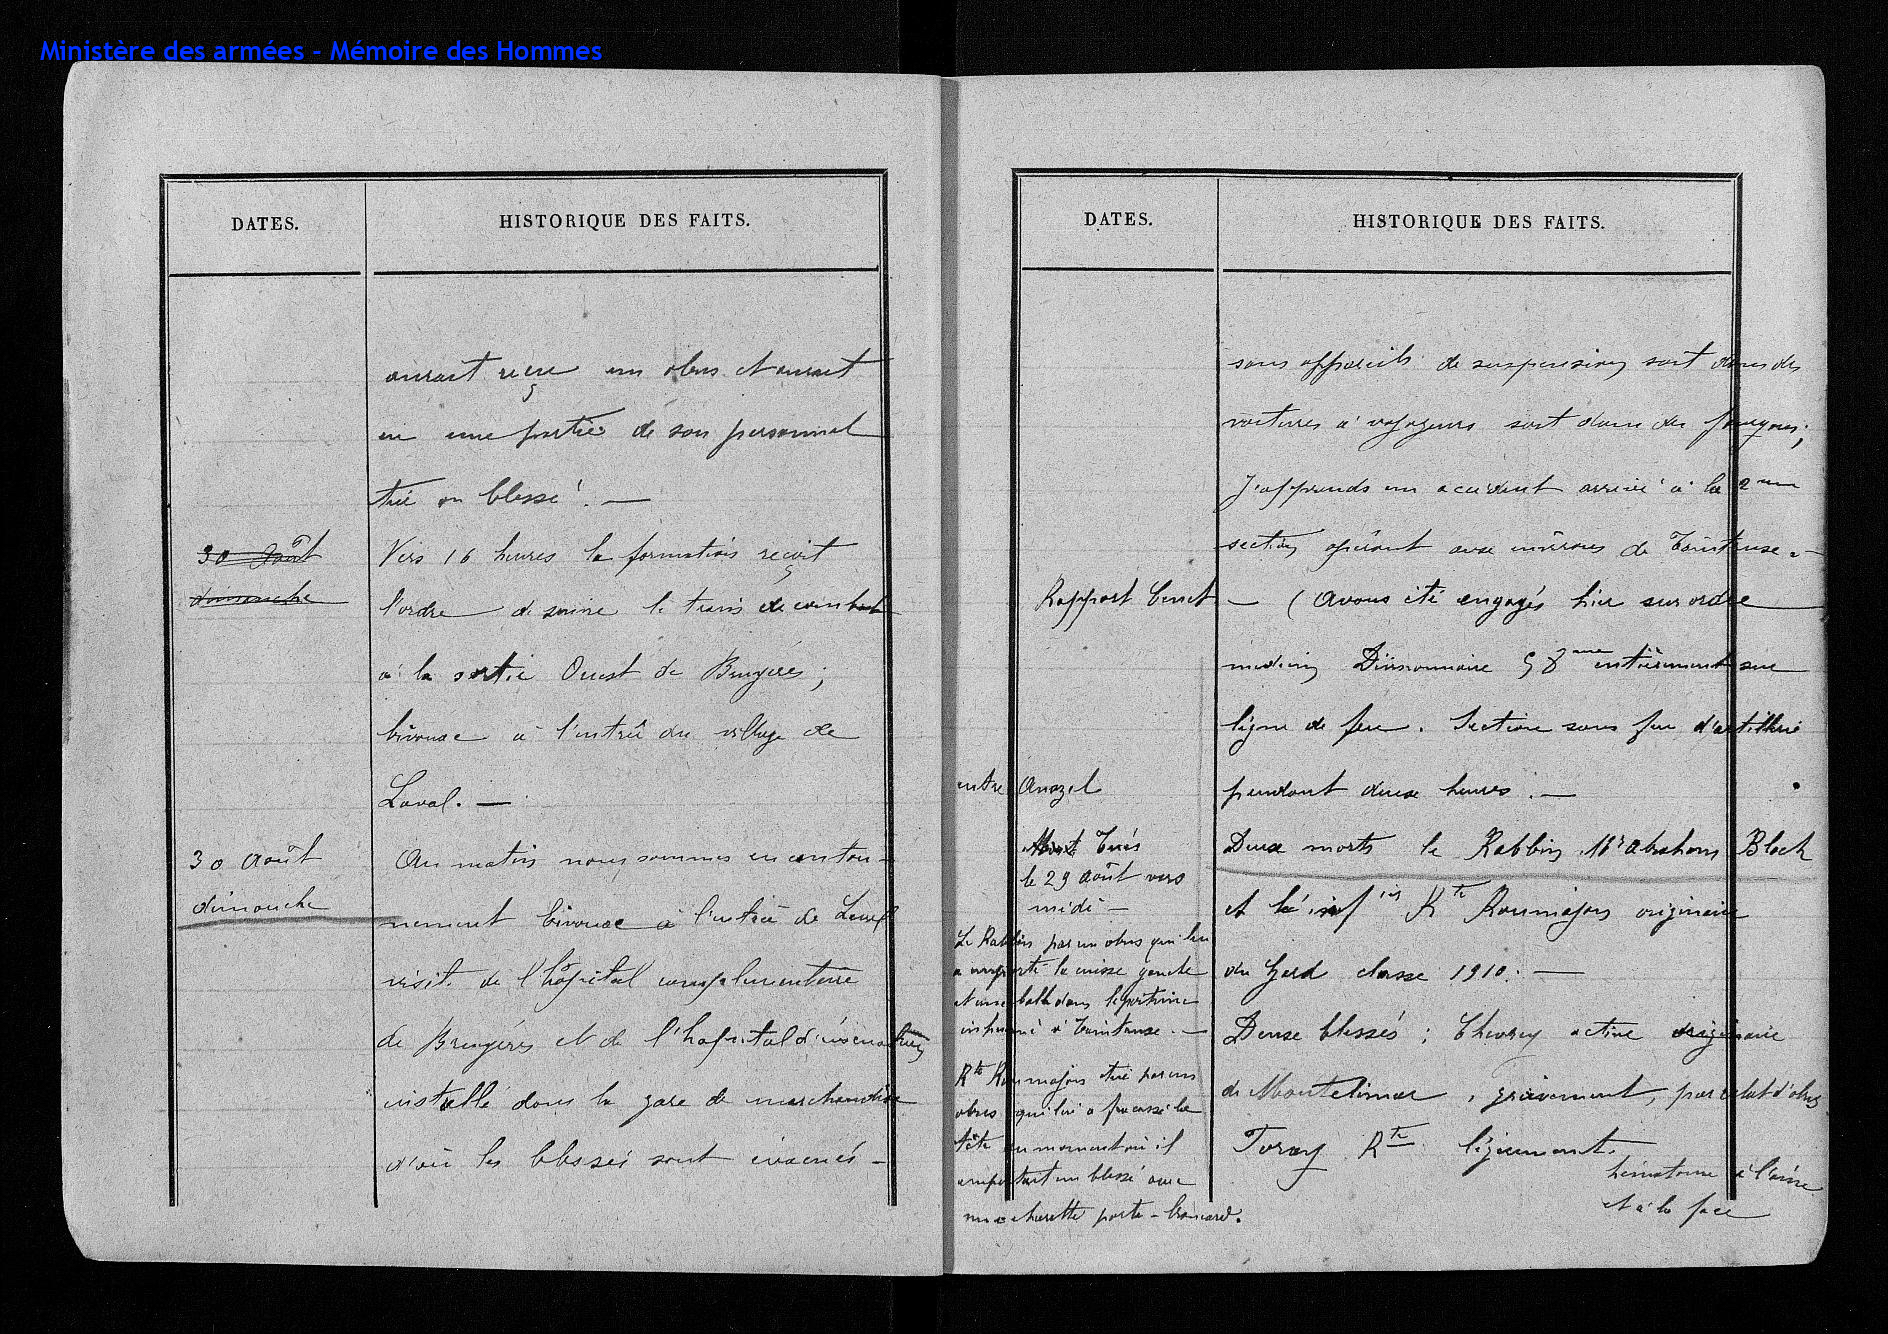 Ministère des armées - Mémoire des Hommes
DATES.
HISTORIQUE DES FAITS.
aurait reçu un obus et aurait
eu une partie de son personnel
tué ou blessé. —
30 Août
dimanche
Vers 16 heures la formation reçoit
l'ordre de suivre le train de combat
à la sortie Ouest de Bruyères ;
bivouac à l'entrée du village de
Laval. —
30 Août
dimanche
Au matin nous sommes en canton-
nement bivouac à l'entrée de Laval
visite de l'hôpital complémentaire
de Bruyères et de l'hopital d'évacuation
installé dans la gare de marchandise
d'où les blessés sont évacués -
DATES.
HISTORIQUE DES FAITS.
sans appareils de suspension soit dans des
voitures à voyageurs soit dans des fourgons ;
J'apprends un accident arrivé à la 2me
section opérant aux environs de Taintrux -
Rapport
— (Avons été engagés hier sur ordre
médecin Divisionnaire 58me entièrement sur
ligne de feu. Section sous feu d'artillerie
pendant deux heures. —
entre Anozel
Tués
le 29 Août vers
midi —
Deux morts le Rabbin Mr Abraham Bloch
et l' Rte Roumajon originaire
du Gard classe 1910. —
Le Rabbin par un obus qui lui
a emporté la cuisse gauche
et une balle dans la poitrine
inhumé à Taintrux. —
Deux blessés : active originaire
de Montelimar, grièvement, par éclat d'obus
Rte Roumajon tué par un
obus qui lui a fracassé la
tête au moment où il
emportait un blessé avec
une charette porte-brancard.
Rte légèrement.
hématome à l'aine
et à la face